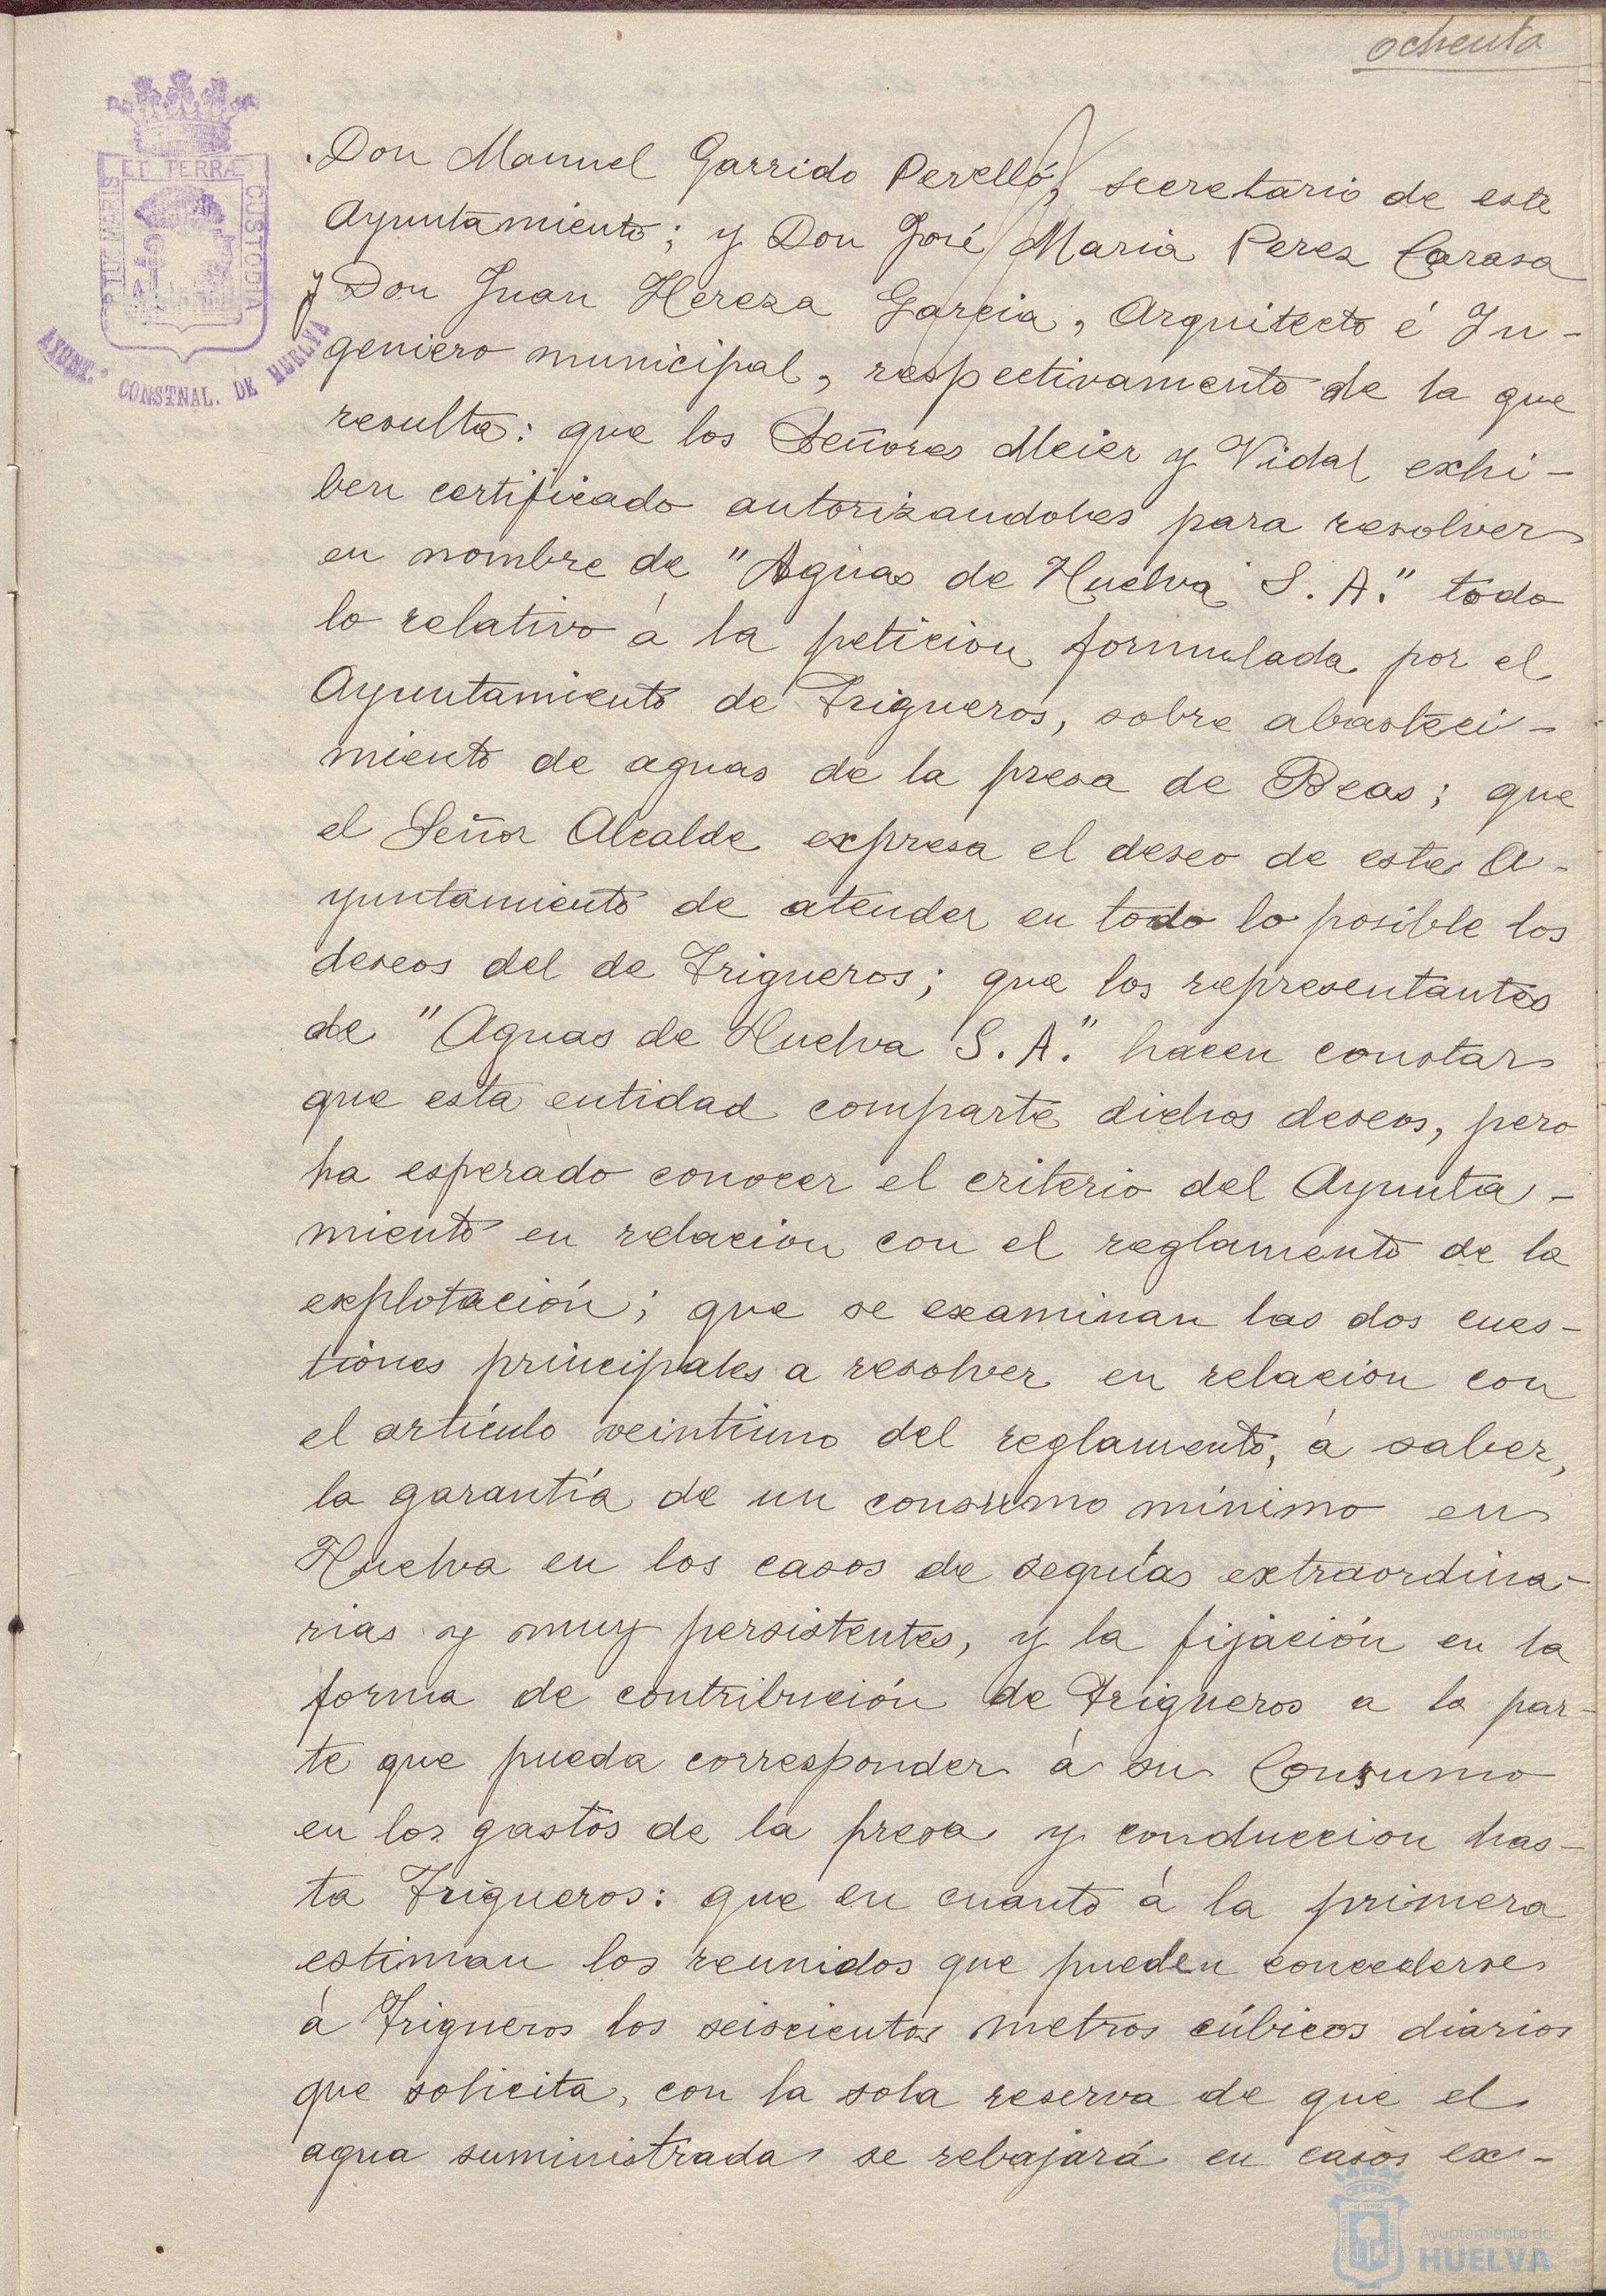 ochenta
PORTUS MARIS ET TERRÆ CUSTODIA
AYUNT.º CONSTNAL. DE HUELVA
Don Manuel Garrido Perelló, secretario de este
Ayuntamiento; y Don José Maria Perez Carasa
y Don Juan Hereza Garcia, Arquitecto é In-
geniero municipal, respectivamente de la que
resulta: que los Señores Meier y Vidal exhi-
ben certificado autorizandoles para resolver
en nombre de "Aguas de Huelva S. A." todo
lo relativo á la peticion formulada por el
Ayuntamiento de Trigueros, sobre abasteci-
miento de aguas de la presa de Beas; que
el Señor Alcalde expresa el deseo de este A-
yuntamiento de atender en todo lo posible los
deseos del de Trigueros; que los representantes
de "Aguas de Huelva S. A." hacen constar
que esta entidad comparte dichos deseos, pero
ha esperado conocer el criterio del Ayunta-
miento en relacion con el reglamento de la
explotación; que se examinan las dos cues-
tiones principales a resolver en relacion con
el artículo veintiuno del reglamento, á saber,
la garantía de un consumo mínimo en
Huelva en los casos de sequías extraordina-
rias y muy persistentes, y la fijación en la
forma de contribución de Trigueros a la par-
te que pueda corresponder á su Consumo
en los gastos de la presa y conduccion has-
ta Trigueros: que en cuanto á la primera
estiman los reunidos que pueden concederse
á Trigueros los seiscientos metros cúbicos diarios
que solicita, con la sola reserva de que el
agua suministrada se rebajará en casos ex-
Ayuntamiento de
HUELVA